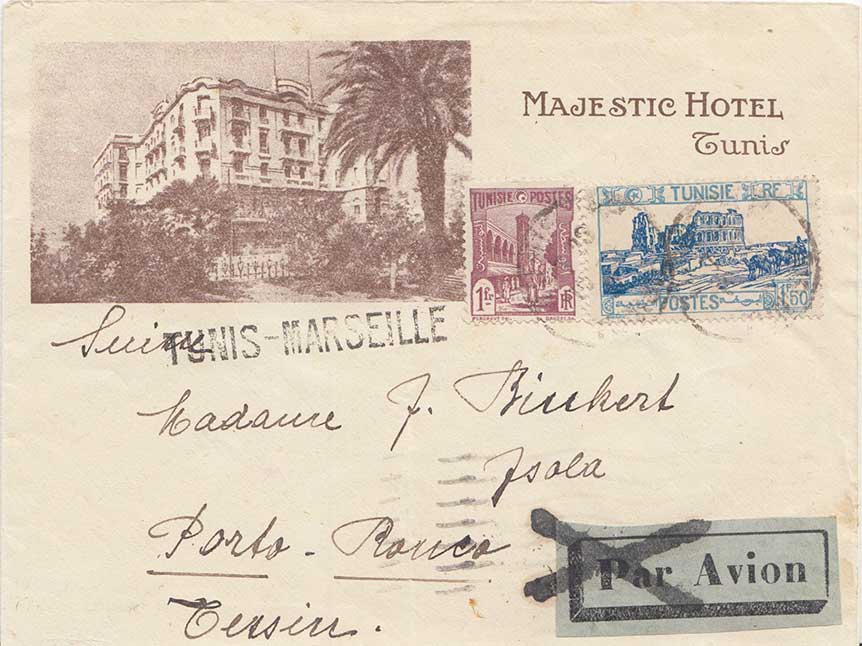 MAJESTIC HOTEL
Tunis
TUNISIE POSTES
1Fr
RF
TUNISIE RF
POSTES
1F50
Suisse
TUNIS-MARSEILLE
Madame J. Binkert
Isola
Porto-Ronco
Tessin.
Par Avion